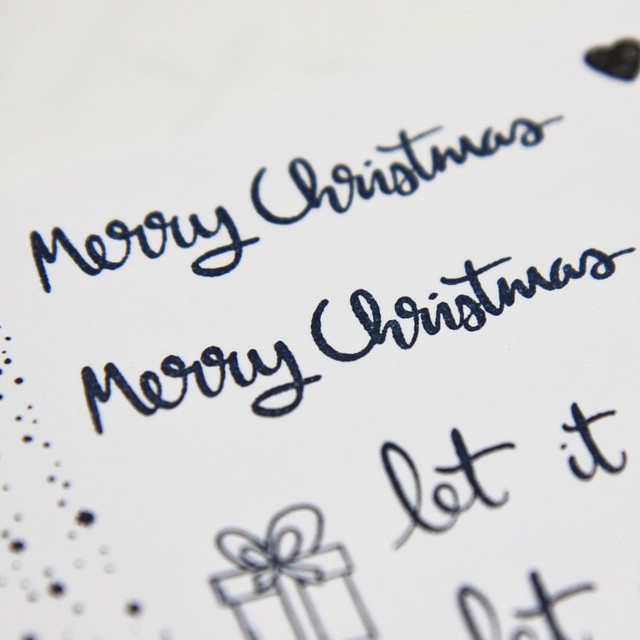 Merry Christmas
Merry Christmas
let it
let